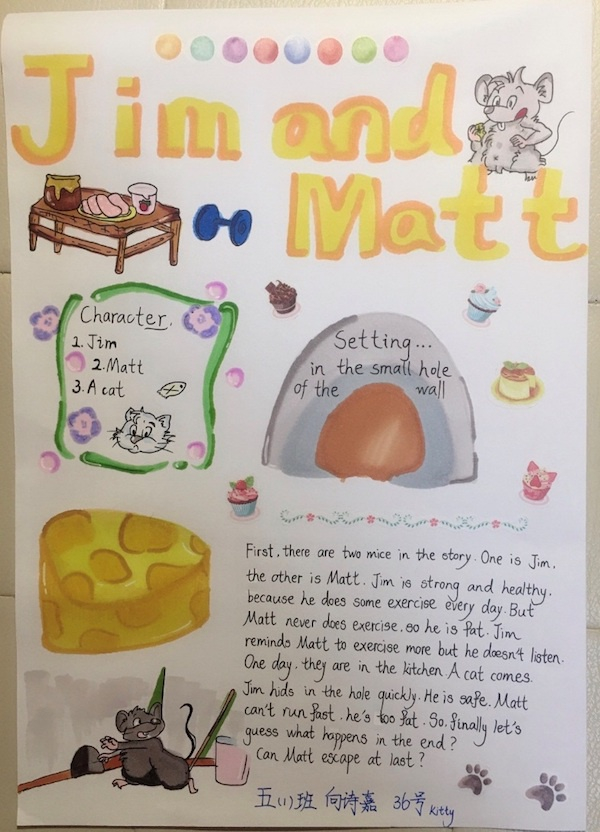 Jim and
Matt
Character.
1. Jim
2. Matt
3. A cat
Setting...
in the small hole
of the wall
First, there are two mice in the story. One is Jim,
the other is Matt. Jim is strong and healthy,
because he does some exercise every day. But
Matt never does exercise, so he is fat. Jim
reminds Matt to exercise more but he doesn't listen.
One day, they are in the kitchen. A cat comes.
Jim hids in the hole quickly. He is safe. Matt
can't run fast, he's too fat. So, finally let's
guess what happens in the end?
Can Matt escape at last?
五(1)班 向诗嘉 36号 Kitty